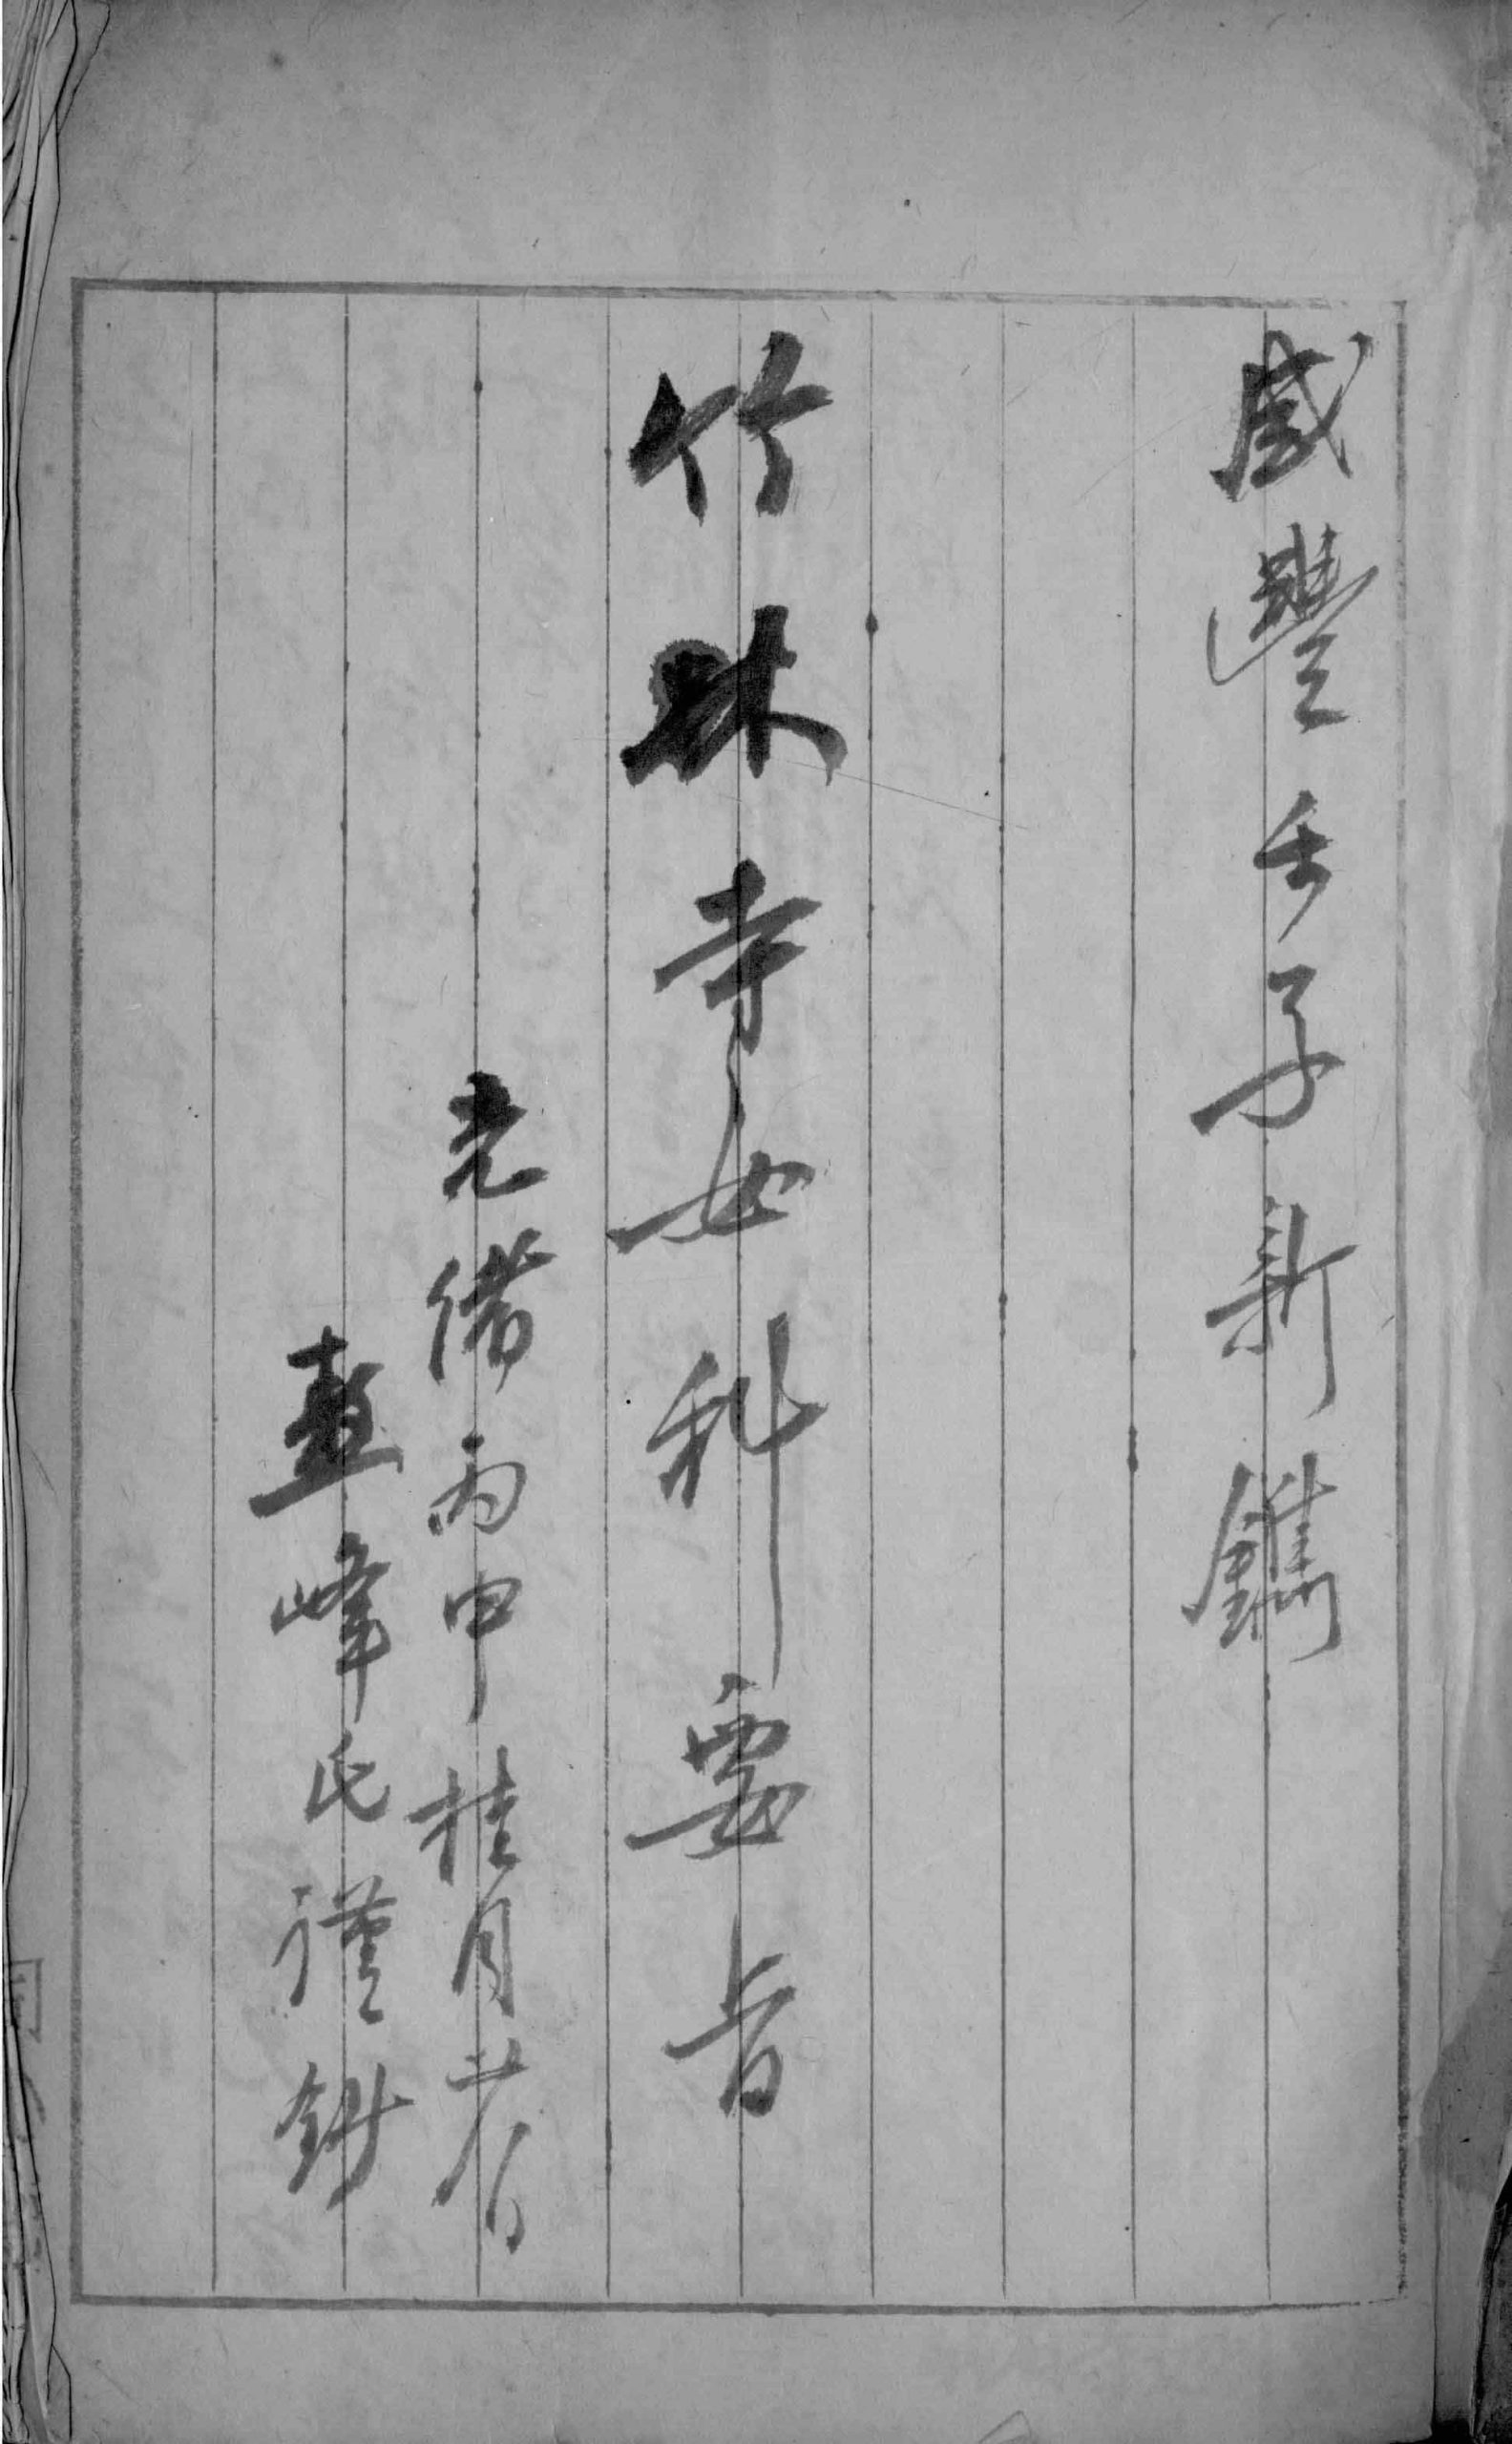 咸豐壬子新鐫
竹林寺女科要旨
光緒丙申桂月
峰氏謹鈔